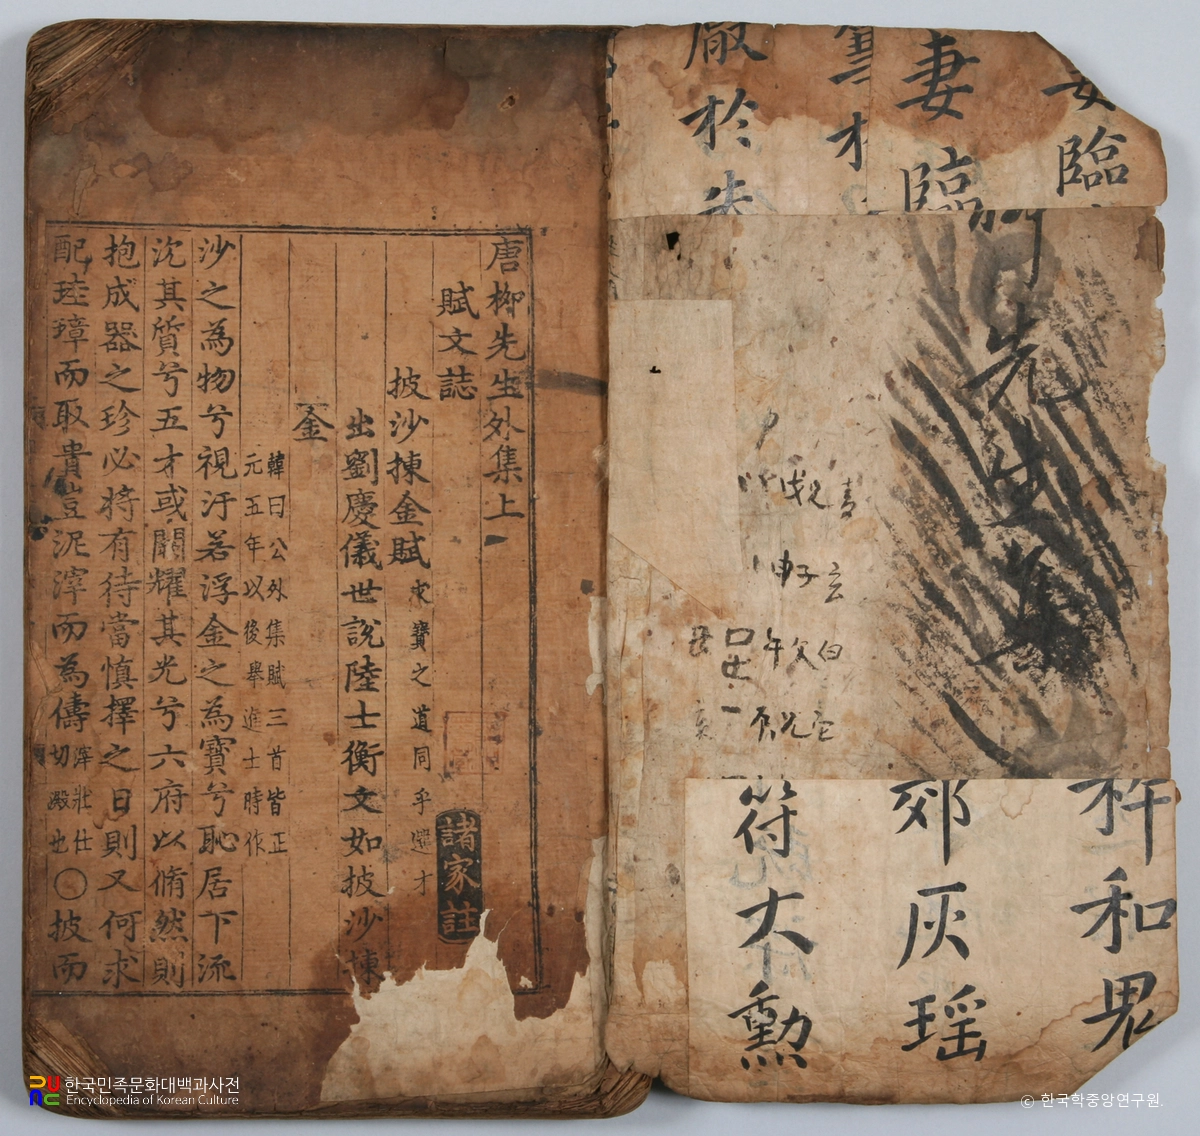 臨
妻臨
嚴於先
先生集
杵和
郊灰瑶
符大勳
唐柳先生外集上
賦文誌 諸家註
披沙揀金賦 求寶之道同乎選才
出劉慶儀世說陸士衡文如披沙揀
金
韓曰公外集賦三首皆正
元五年以後舉進士時作
沙之為物兮視汙若浮金之為寶兮恥居下流
沈其質兮五才或闕耀其光兮六府以脩然則
抱成器之珍必將有待當慎擇之日則又何求
配珪璋而取貴豈泥滓而為儔 滓壯仕切澱也 〇披而
한국민족문화대백과사전
Encyclopedia of Korean Culture
ⓒ 한국학중앙연구원.